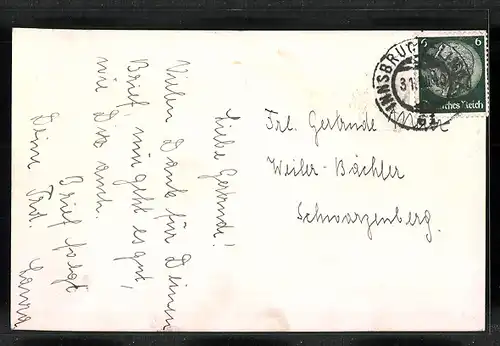 Liebe Gertrude!
Vielen Dank für Deinen
Brief, mir geht es gut,
wie Dir auch.
Brief folgt
Deine Frd.
INNSBRUCK
6 6
Deutsches Reich
Frl. Gertrude
Weiler-Bächler
Schwarzenberg.